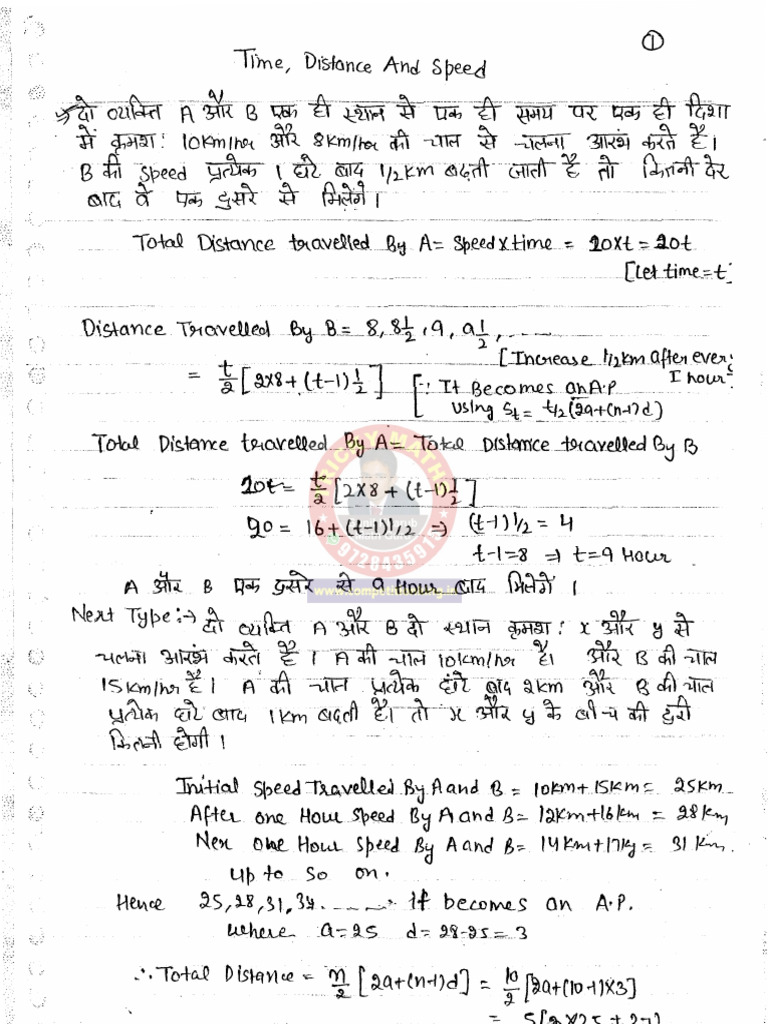 ①
Time, Distance And Speed
दो व्यक्ति A और B एक ही स्थान से एक ही समय पर एक ही दिशा
में क्रमश: 10km/hr और 8km/hr की चाल से चलना आरंभ करते है।
B की Speed प्रत्येक 1 घंटे बाद 1/2km बढ़ती जाती है तो कितनी देर
बाद वे एक दुसरे से मिलेगें।
Total Distance travelled By A= Speed×time = 10×t = 10t
[Let time=t]
Distance Travelled By B = 8, 8 1/2, 9, 9 1/2, ......
[Increase 1/2km after every
1 hour
= t/2 [2×8+(t-1) 1/2]
[∵ It Becomes an A.P
using St = t/2(2a+(n-1)d)
Total Distance travelled By A= Total Distance travelled By B
10t= t/2 [2×8+(t-1) 1/2]
20 = 16+(t-1)1/2 ⇒ (t-1)1/2 = 4
t-1=8 ⇒ t=9 Hour
A और B एक दुसरे से 9 Hour बाद मिलेगें।
9728435915
Next Type:→ दो व्यक्ति A और B दो स्थान क्रमश: x और y से
चलना आरंभ करते है। A की चाल 10km/hr है। और B की चाल
15km/hr है। A की चाल प्रत्येक घंटे बाद 2km और B की चाल
प्रत्येक घंटे बाद 1km बढ़ती है। तो x और y के बीच की दुरी
कितनी होगी।
Initial Speed Travelled By A and B = 10km+15km= 25km
After one Hour Speed By A and B= 12km+16km = 28km
Nex one Hour Speed By A and B= 14km+17kg = 31 km.
up to so on.
Hence 25,28,31,34........ It becomes an A.P.
where a=25 d=28-25=3
∴ Total Distance = n/2 [2a+(n-1)d] = 10/2 [2a+(10-1)×3]
= 5[2×25+27]